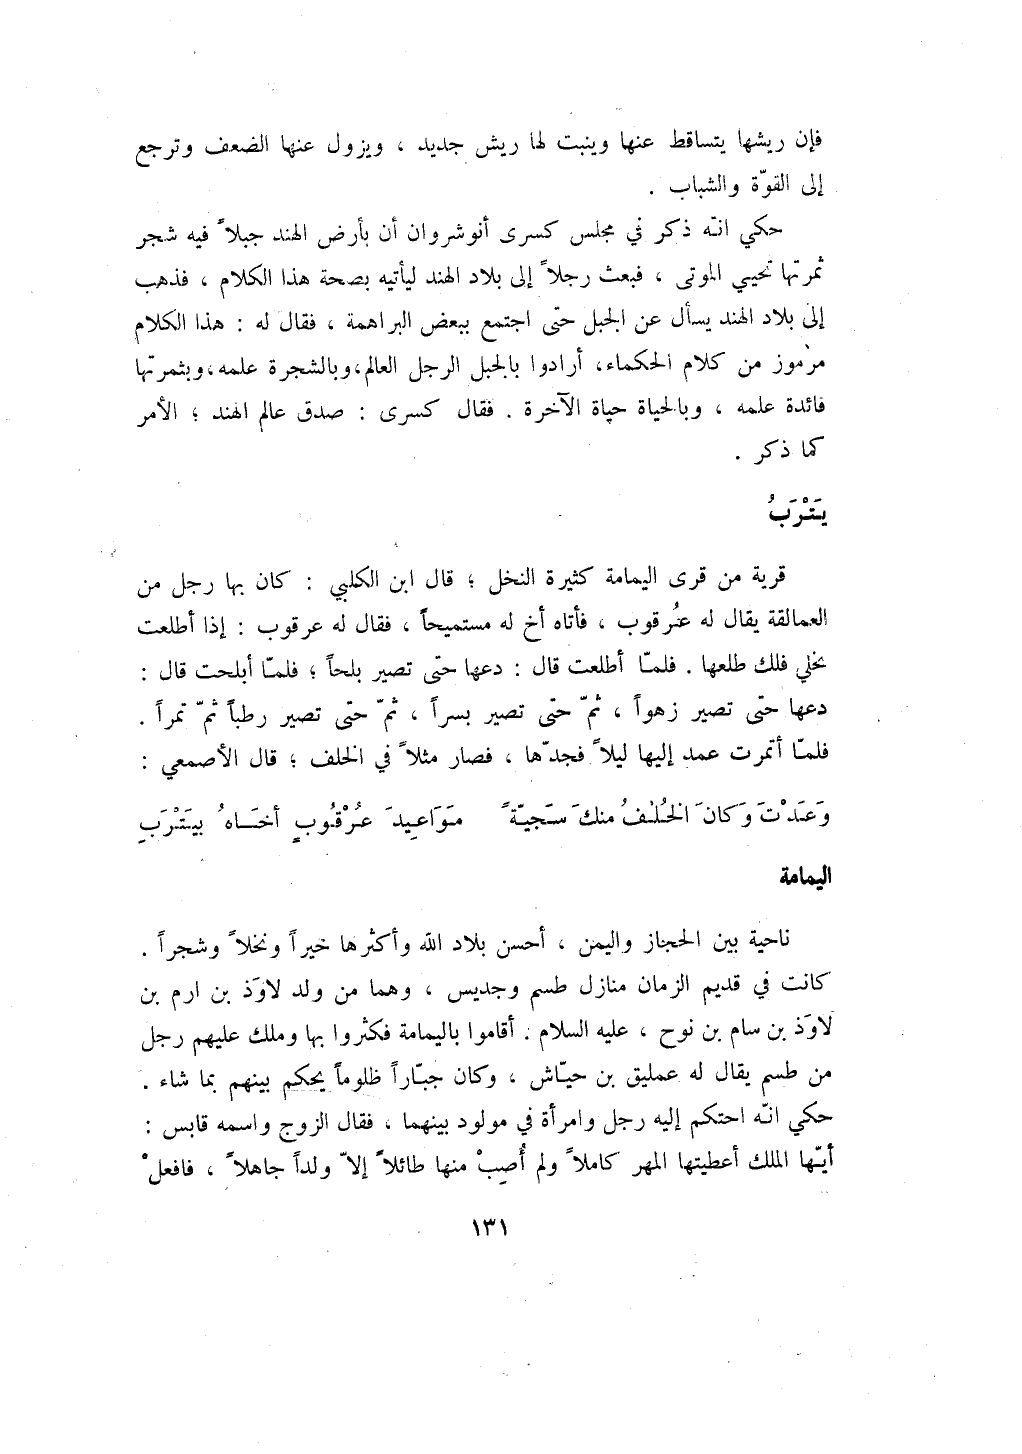 فإن ريشها يتساقط عنها وينبت لها ريش جديد ، ويزول عنها الضعف وترجع
إلى القوّة والشباب .
حكي انّه ذكر في مجلس كسرى أنوشروان أن بأرض الهند جبلاً فيه شجر
ثمرتها تحيي الموتى ، فبعث رجلاً إلى بلاد الهند ليأتيه بصحة هذا الكلام ، فذهب
إلى بلاد الهند يسأل عن الجبل حتّى اجتمع ببعض البراهمة ، فقال له : هذا الكلام
مرموز من كلام الحكماء، أرادوا بالجبل الرجل العالم،وبالشجرة علمه،وبثمرتها
فائدة علمه ، وبالحياة حياة الآخرة . فقال كسرى : صدق عالم الهند ؛ الأمر
كما ذكر .
يَتْرَبُ
قرية من قرى اليمامة كثيرة النخل ؛ قال ابن الكلبي : كان بها رجل من
العمالقة يقال له عُرقوب ، فأتاه أخ له مستميحاً ، فقال له عرقوب : إذا أطلعت
نخلي فلك طلعها . فلمّا أطلعت قال : دعها حتّى تصير بلحاً ؛ فلمّا أبلحت قال :
دعها حتّى تصير زهواً ، ثمّ حتّى تصير بسراً ، ثمّ حتّى تصير رطباً ثمّ تمراً .
فلمّا أتمرت عمد إليها ليلاً فجدّها ، فصار مثلاً في الخلف ؛ قال الأصمعي :
وَعَدْتَ وَكانَ الخُلْفُ منكَ سَجيّةً مَوَاعِيدَ عُرْقُوبٍ أخَاهُ بيَتْرَبِ
اليمامة
ناحية بين الحجاز واليمن ، أحسن بلاد اللّه وأكثرها خيراً ونخلاً وشجراً .
كانت في قديم الزمان منازل طسم وجديس ، وهما من ولد لاوَذ بن ارم بن
لاوَذ بن سام بن نوح ، عليه السلام . أقاموا باليمامة فكثروا بها وملك عليهم رجل
من طسم يقال له عمليق بن حيّاش ، وكان جبّاراً ظلوماً يحكم بينهم بما شاء .
حكي انّه احتكم إليه رجل وامرأة في مولود بينهما ، فقال الزوج واسمه قابس :
أيّها الملك أعطيتها المهر كاملاً ولم أُصِبْ منها طائلاً إلاّ ولداً جاهلاً ، فافعلْ
١٣١